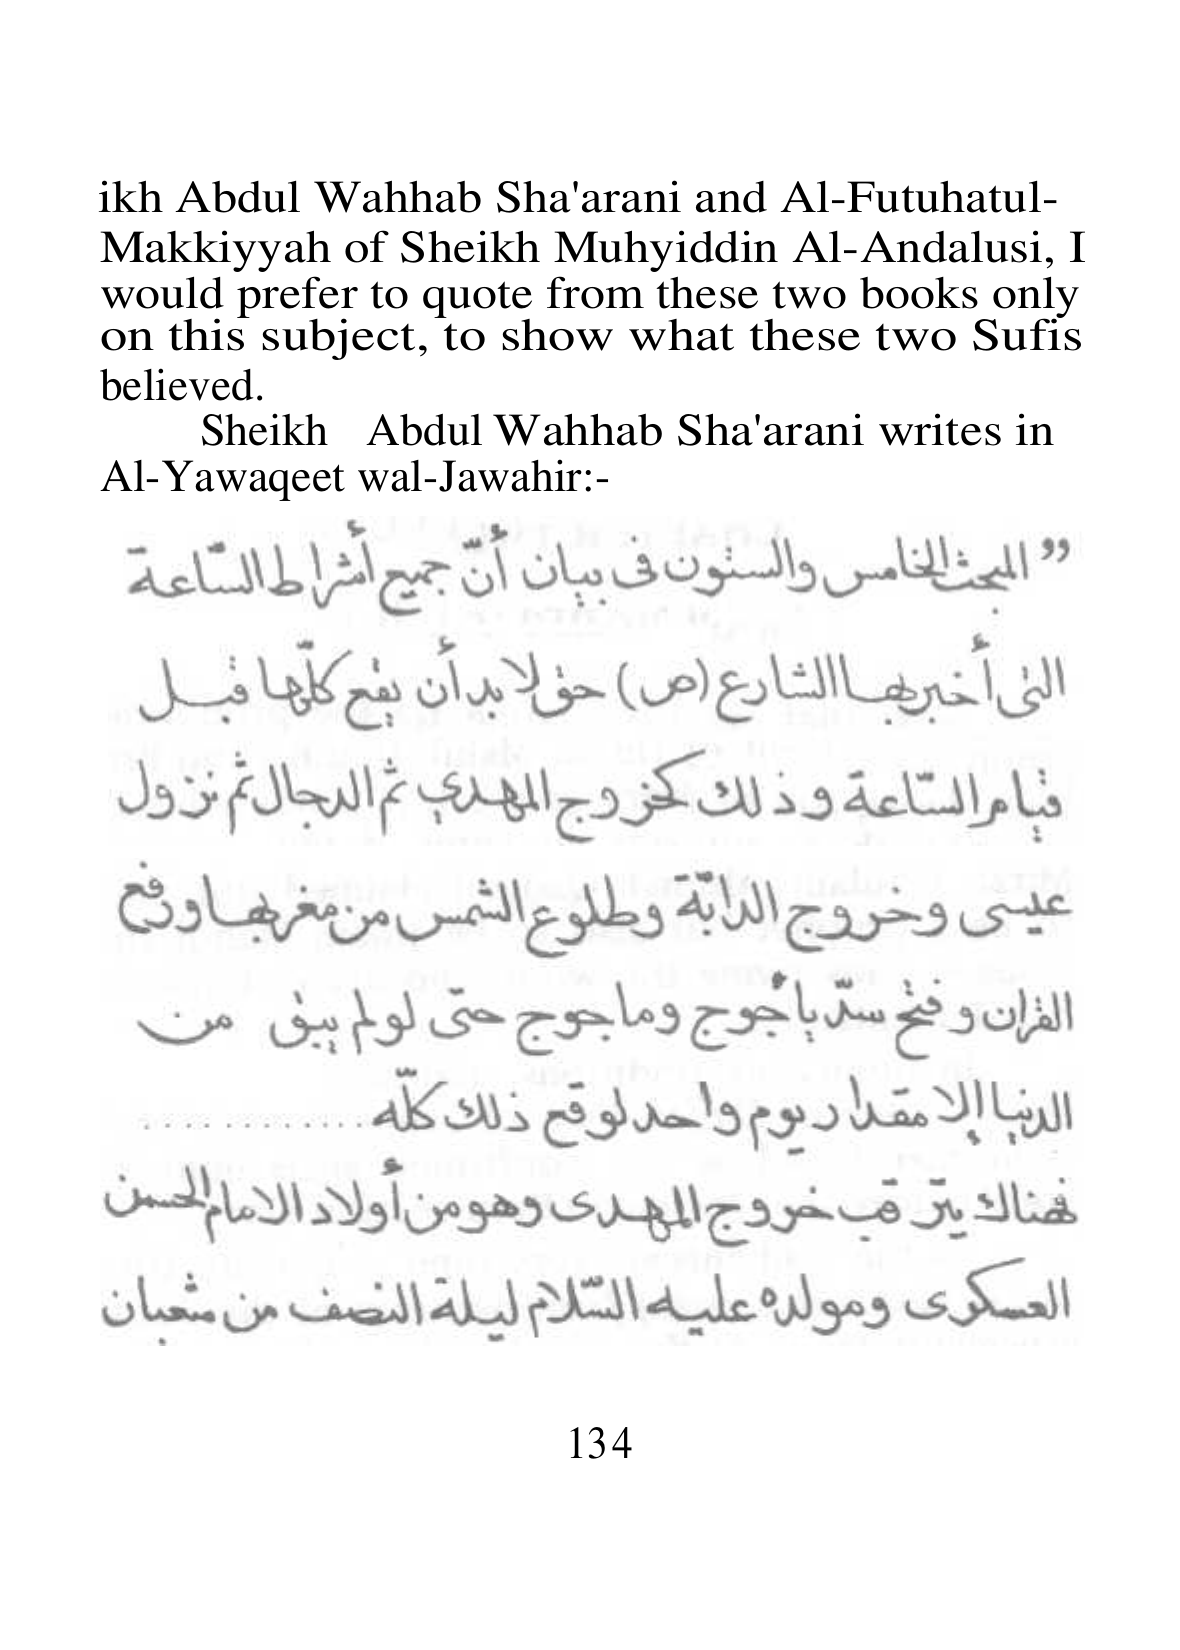 ikh Abdul Wahhab Sha'arani and Al-Futuhatul-
Makkiyyah of Sheikh Muhyiddin Al-Andalusi, I
would prefer to quote from these two books only
on this subject, to show what these two Sufis
believed.
Sheikh Abdul Wahhab Sha'arani writes in
Al-Yawaqeet wal-Jawahir:-
” المبحث الخامس والستون فى بيان أنّ جميع أشراط السّاعة
التى أخبر بها الشارع (ص) حق لا بد أن يقع كلّها قبل
قيام السّاعة وذلك كخروج المهدي ثمّ الدجال ثمّ نزول
عيسى وخروج الدابّة وطلوع الشّمس من مغربها ورفع
القران وفتح سدّ يأجوج وماجوج حتّى لو لم يبق من
الدنيا إلا مقدار يوم واحد لوقع ذلك كلّه ............
فهناك يترّقب خروج المهدى وهو من أولاد الامام الحسن
العسكرى ومولده عليه السّلام ليلة النصف من شعبان
134